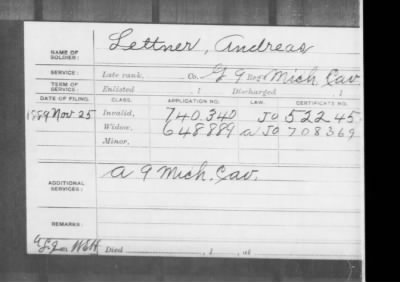 NAME OF SOLDIER: Lettner, Andreas
SERVICE: Late rank, Co. G 9 Reg't Mich. Cav
TERM OF SERVICE: Enlisted , 1 Discharged , 1
DATE OF FILING. CLASS. APPLICATION NO. LAW. CERTIFICATE NO.
1889 Nov 25 Invalid, 740.340 522 45
Widow, 648.889 708369
Minor,
ADDITIONAL SERVICES: A 9 Mich. Cav.
REMARKS:
Died , 1 , at